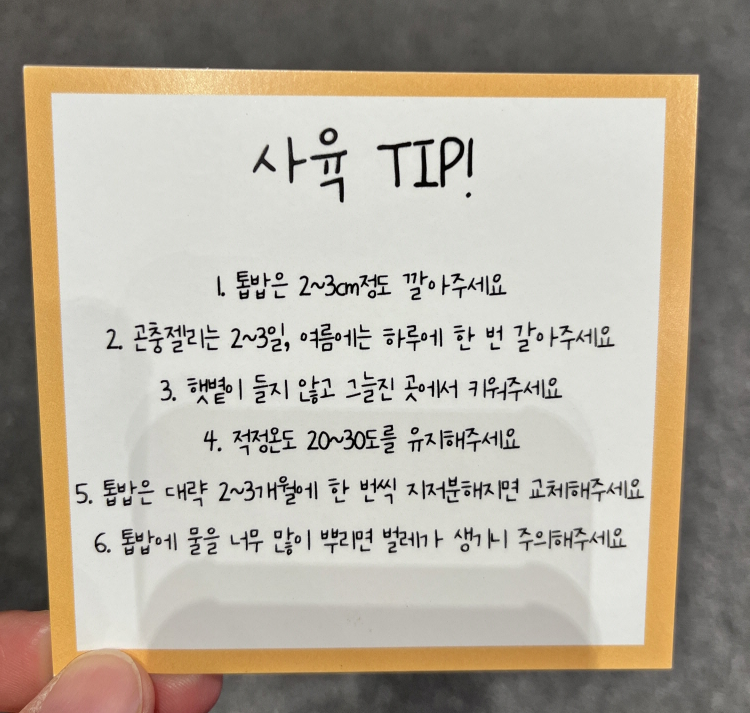 사육 TIP!
1. 톱밥은 2~3cm정도 깔아주세요
2. 곤충젤리는 2~3일, 여름에는 하루에 한 번 갈아주세요
3. 햇볕이 들지 않고 그늘진 곳에서 키워주세요
4. 적정온도 20~30도를 유지해주세요
5. 톱밥은 대략 2~3개월에 한 번씩 지저분해지면 교체해주세요
6. 톱밥에 물을 너무 많이 뿌리면 벌레가 생기니 주의해주세요